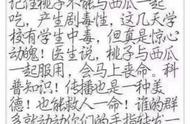 记住桃子不能与西瓜一起
吃，产生剧毒性，这几天学
校有学生中毒，但真是惊心
动魄！医生说，桃子与西瓜
一起服用，会马上丧命。科
普知识！传播也是一种美
德！也能救人一命！谁的群
多就动动你们的手指转出一